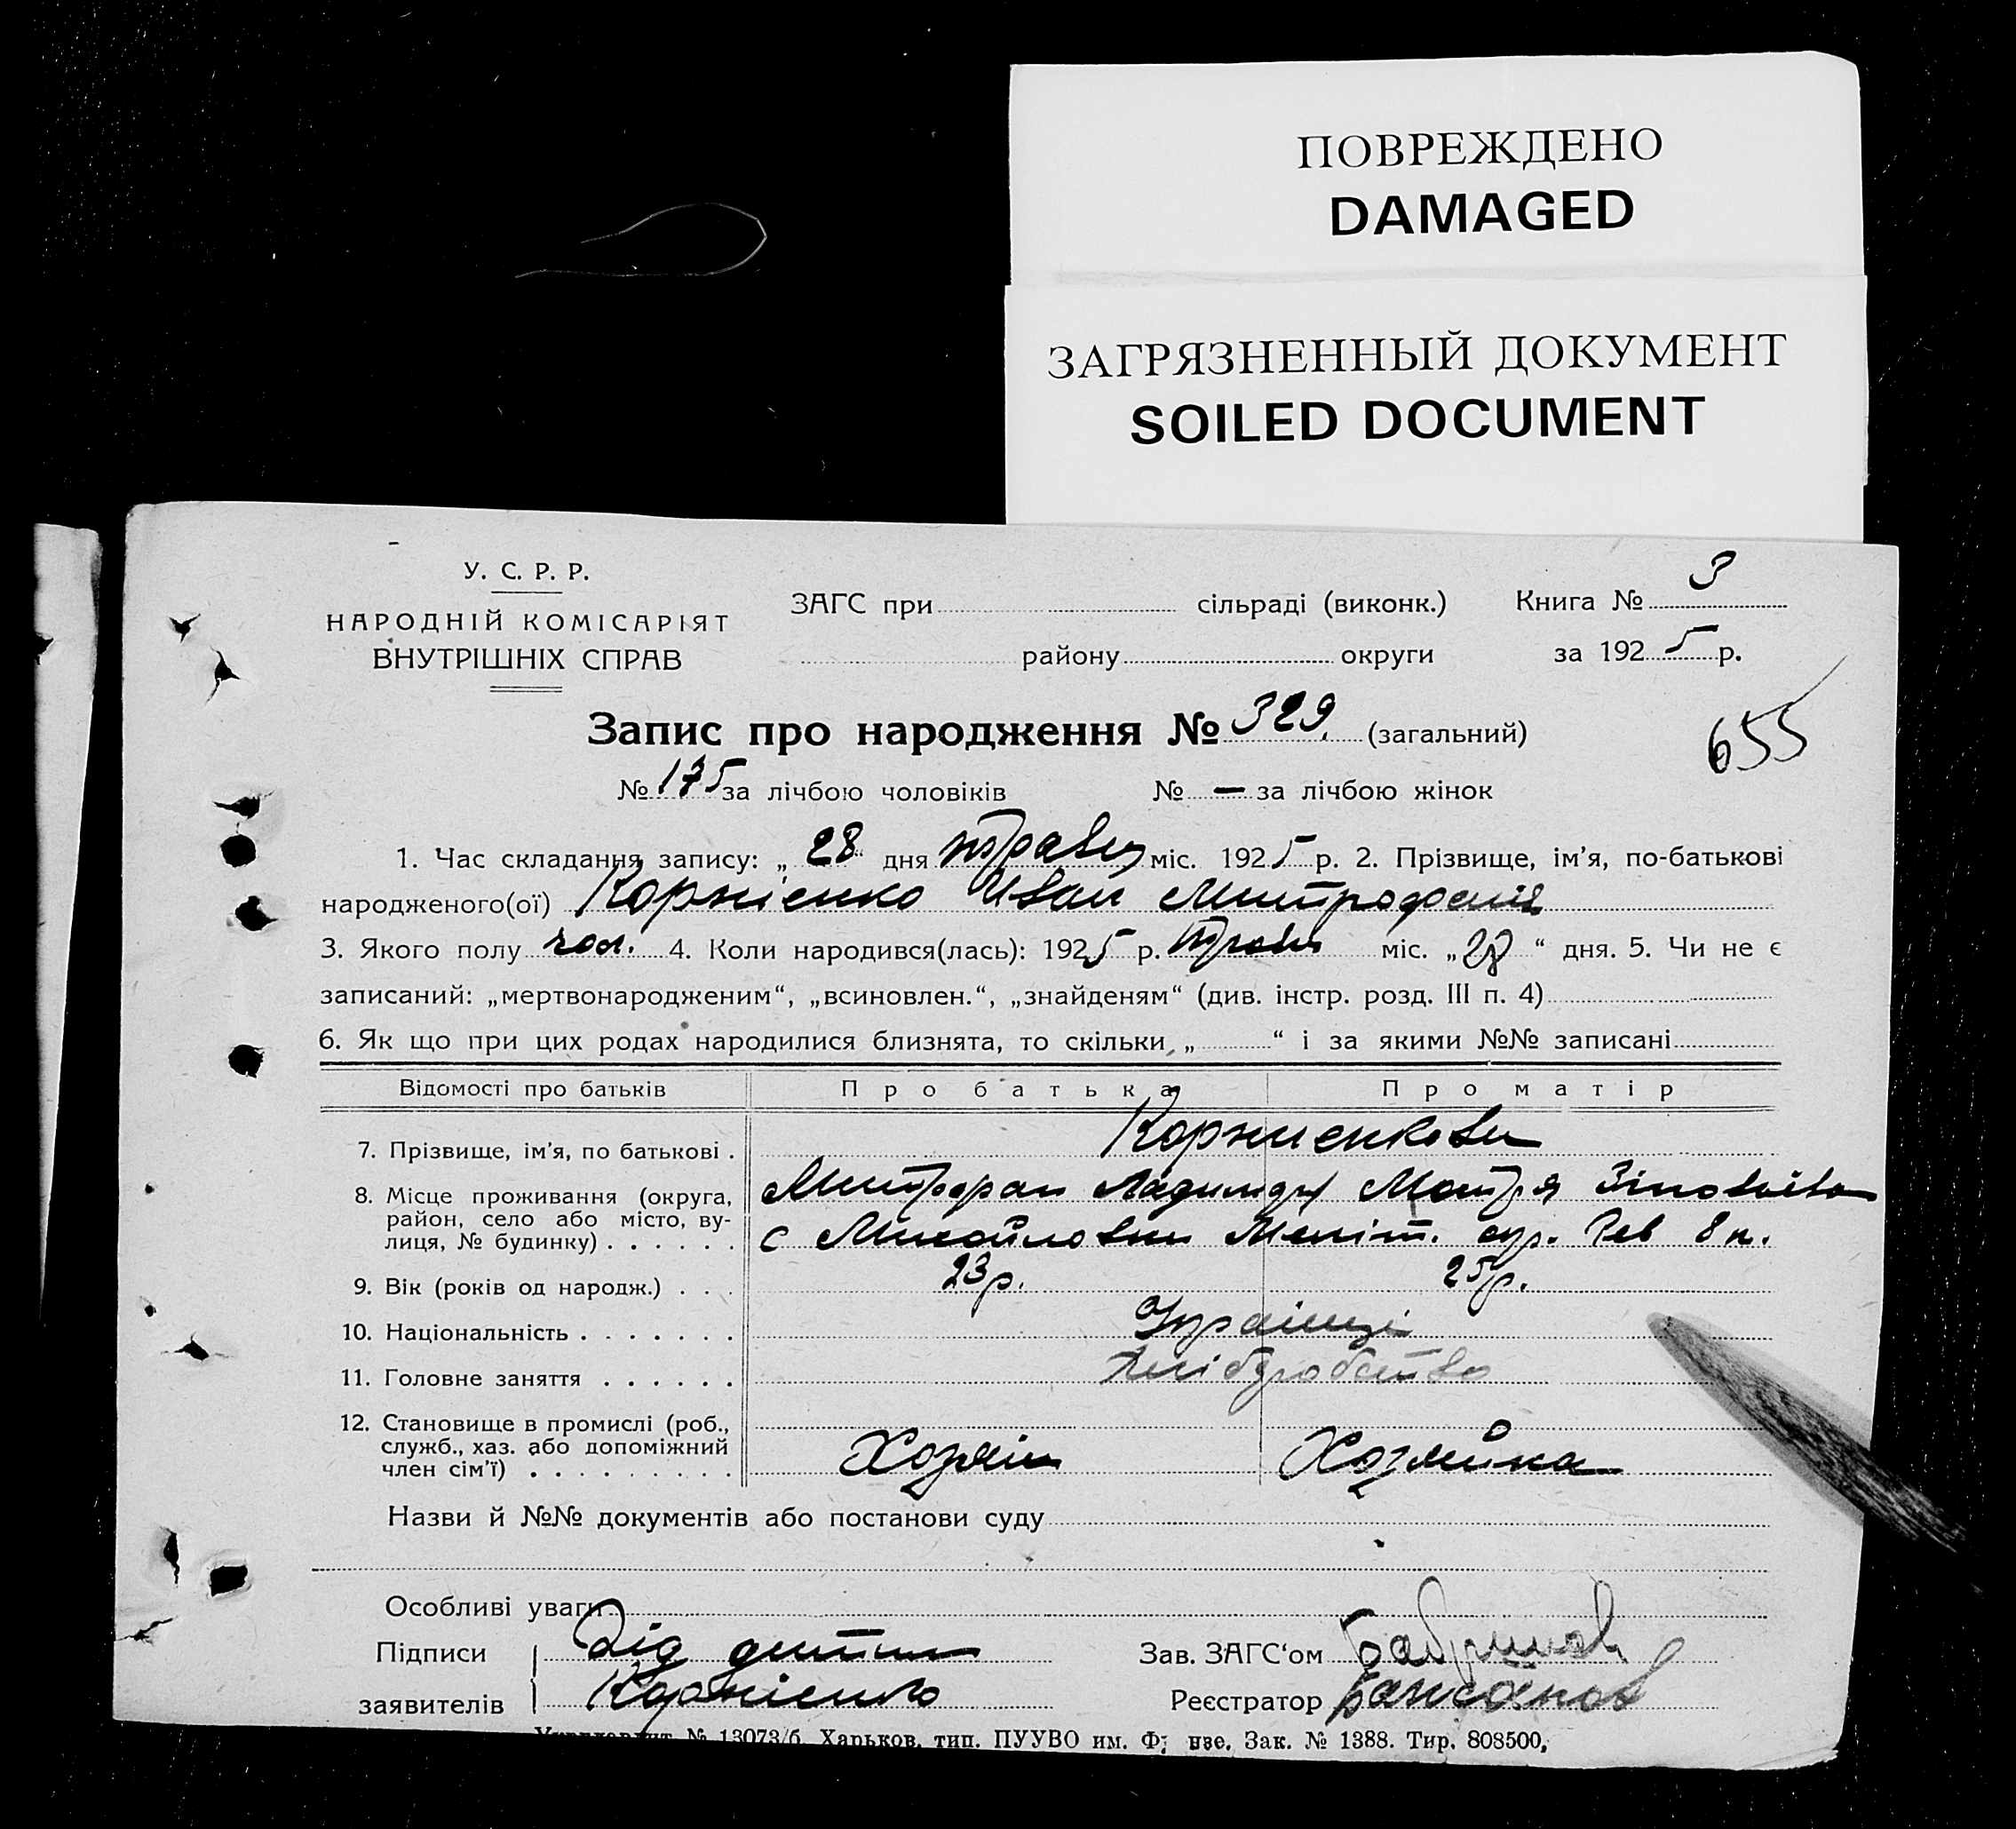 ПОВРЕЖДЕНО
DAMAGED
ЗАГРЯЗНЕННЫЙ ДОКУМЕНТ
SOILED DOCUMENT
У. С. Р. Р.
НАРОДНІЙ КОМІСАРІЯТ
ВНУТРІШНІХ СПРАВ
ЗАГС при сільраді (виконк.) Книга № 3
району округи за 1925 р.
Запис про народження № 329 (загальний)
655
№ 175 за лічбою чоловіків № — за лічбою жінок
1. Час складання запису: „28“ дня травня міс. 1925 р. 2. Прізвище, ім’я, по-батькові
народженого(ої) Корнієнко Иван Митрофанів
3. Якого полу чол. 4. Коли народився(лась): 1925 р. травн міс. „28“ дня. 5. Чи не є
записаний: „мертвонародженим“, „всиновлен.“, „знайденям“ (див. інстр. розд. III п. 4)
6. Як що при цих родах народилися близнята, то скільки „ “ і за якими №№ записані
Відомості про батьків Про батька Про матір
7. Прізвище, ім’я, по батькові . Корниенкови
8. Місце проживання (округа, район, село або місто, вулиця, № будинку) Митрофан Мотря
с Михайловки Меліт. окр.
9. Вік (років од народж.) 23 р. 25 р.
10. Національність Українці
11. Головне заняття Хліборобство
12. Становище в промислі (роб., служб., хаз. або допоміжний член сім’ї) Хозяін Хозяйка
Назви й №№ документів або постанови суду
Особливі уваги
Підписи Дід дитини Зав. ЗАГС‘ом
заявителів Корнієнко Реєстратор
№ 13073/б. Харьков, тип. ПУУВО им. Зак. № 1388. Тир. 808500,